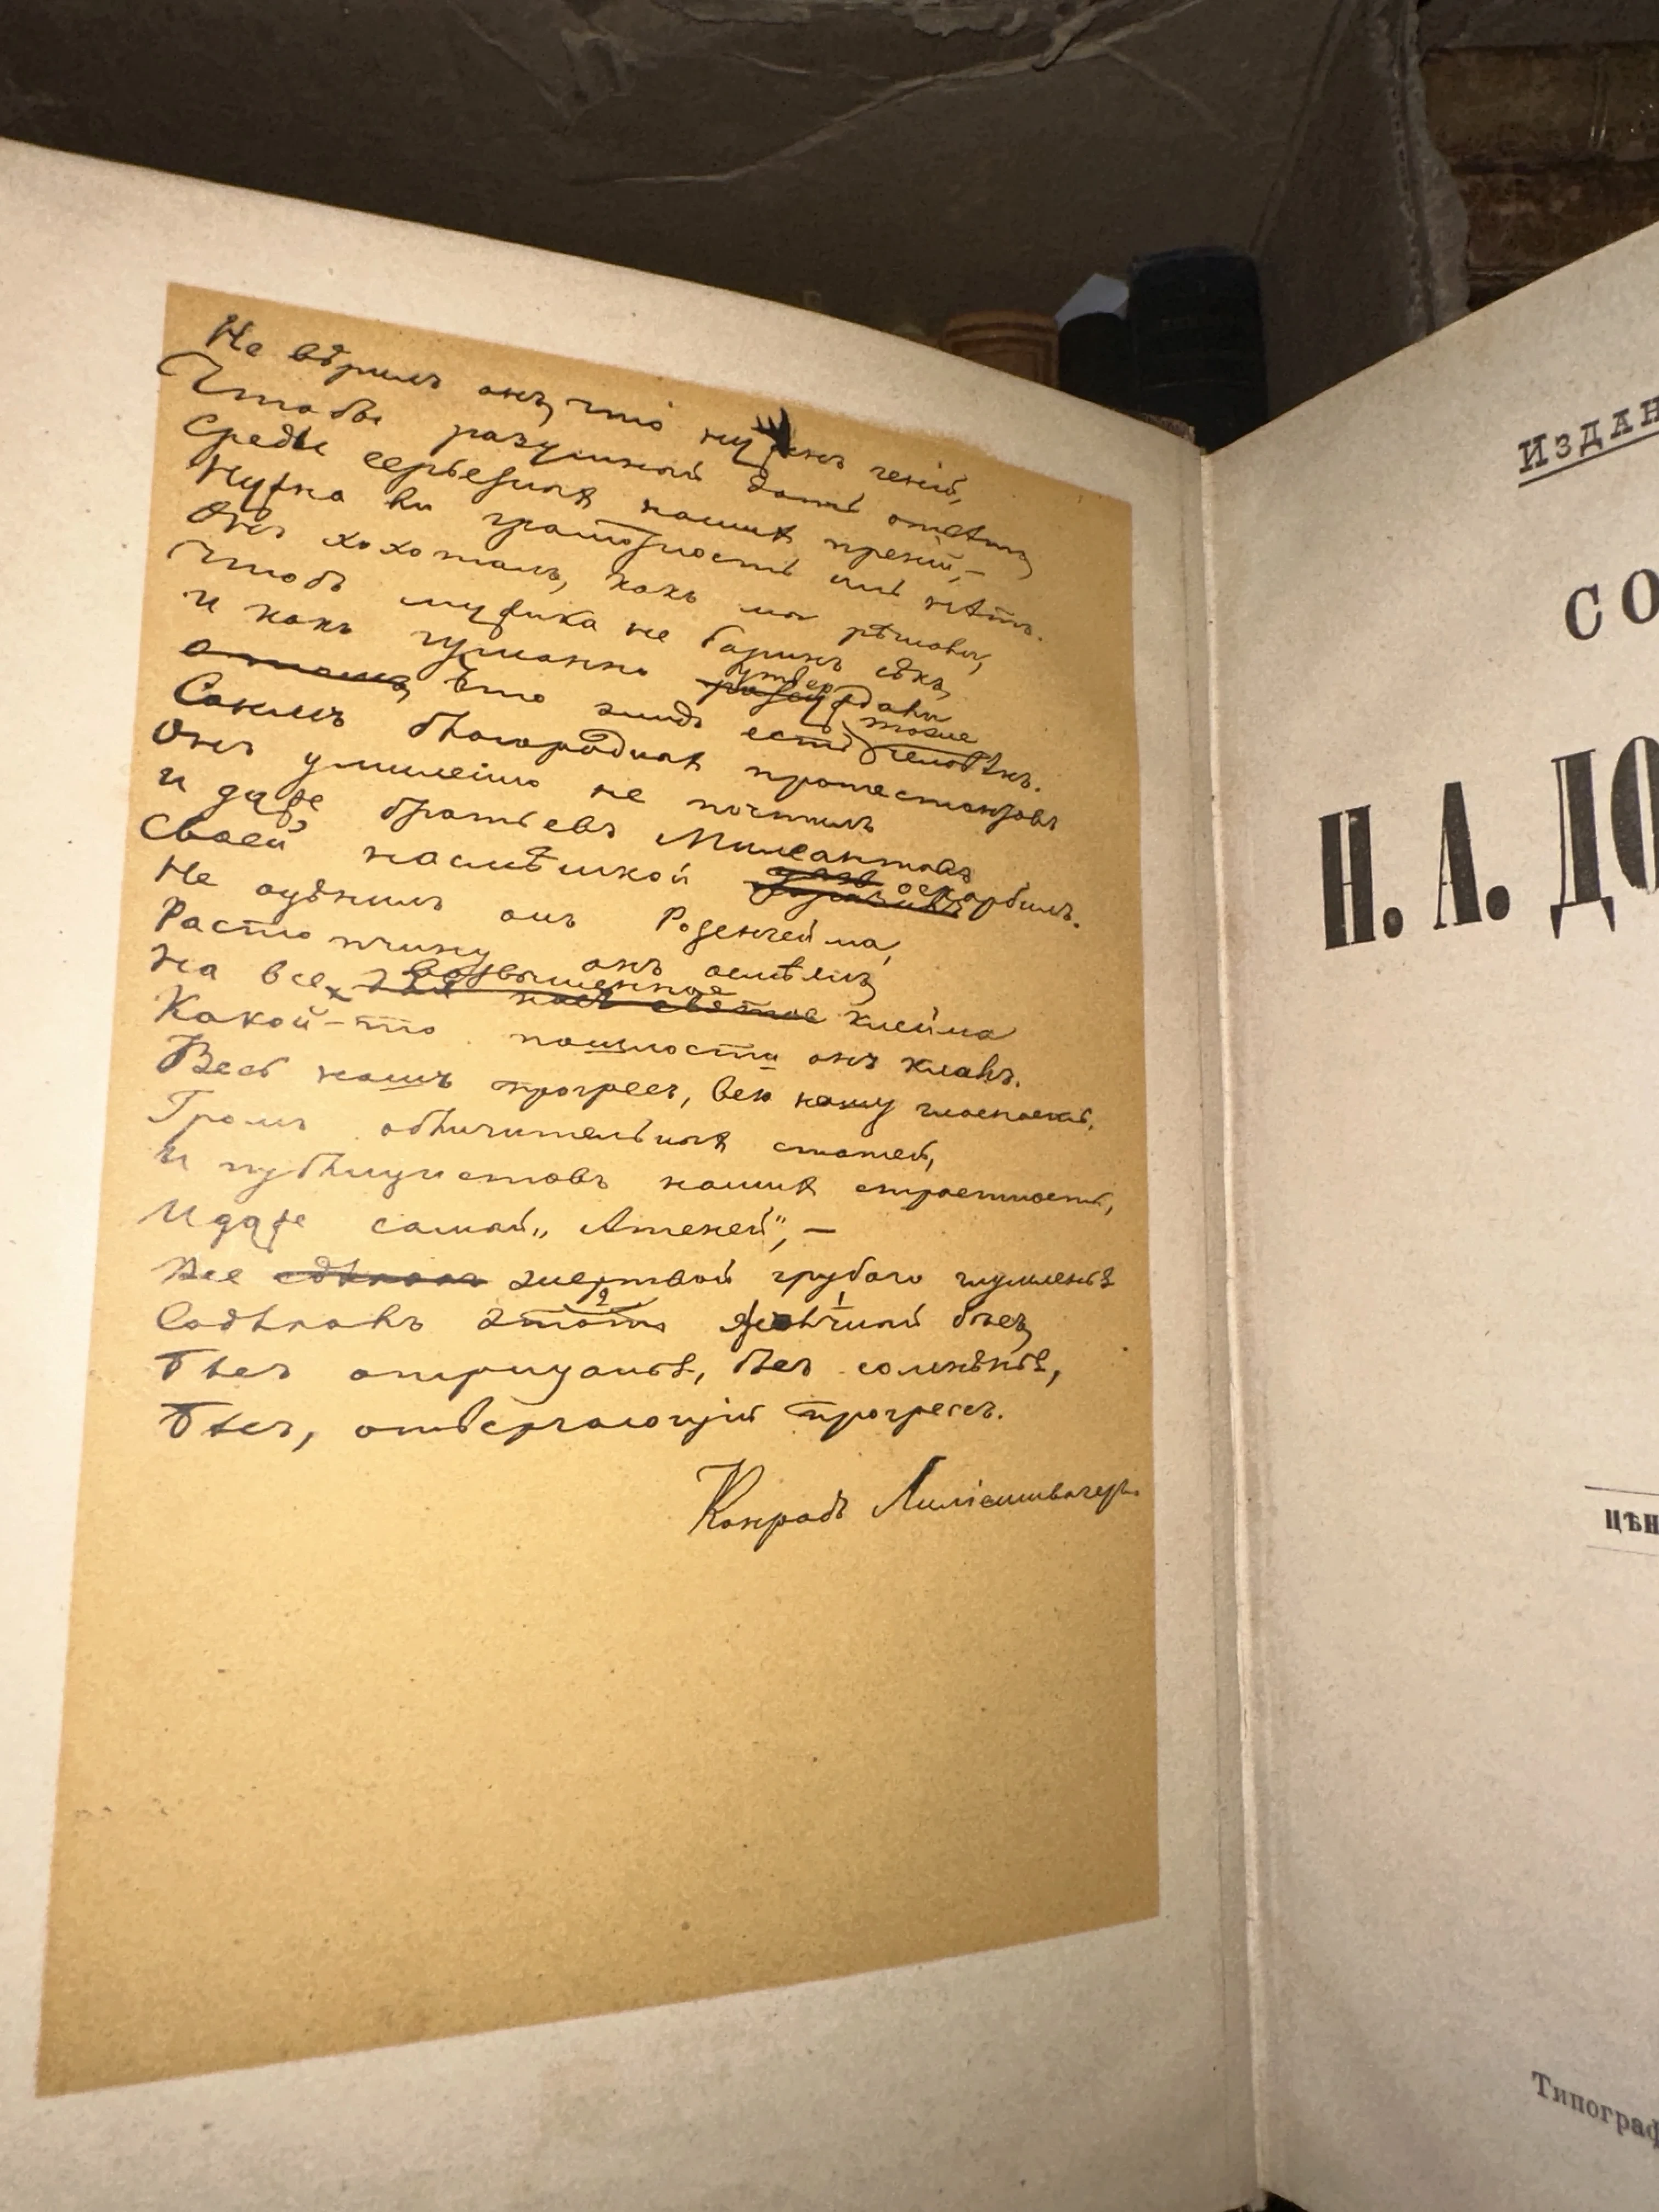 Не вѣрилъ онъ, что нуженъ геній,
Чтобы разумный дать отвѣтъ,
Среди серьезныхъ нашихъ преній, —
Нужна ли грамотность иль нѣтъ.
Онъ хохоталъ, какъ мы рѣшали,
Чтобъ мужика не баринъ сѣкъ,
И какъ гуманно утверждали
Что жидъ есть тоже человѣкъ.
Сонмъ благородныхъ протестантовъ
Онъ умиленно не почтилъ
И даже братьевъ Милеантовъ
Своей насмѣшкой оскорбилъ.
Не оцѣнилъ онъ Розенгейма,
Растопчину онъ осмѣялъ,
На все возвышенное клейма
Какой-то пошлости онъ клалъ.
Весь нашъ прогрессъ, всю нашу гласность,
Громъ обличительныхъ статей,
И публицистовъ нашихъ страстность,
И даже самый „Атеней“, —
Все жертвой грубаго глумленья
Содѣлалъ этотъ желчный бѣсъ,
Бѣсъ отрицанья, бѣсъ сомнѣнья,
Бѣсъ, отвергающій прогрессъ.
Конрадъ Лиліеншвагеръ.
Издан
СО
Н. А. ДО
ЦѢН
Типограф